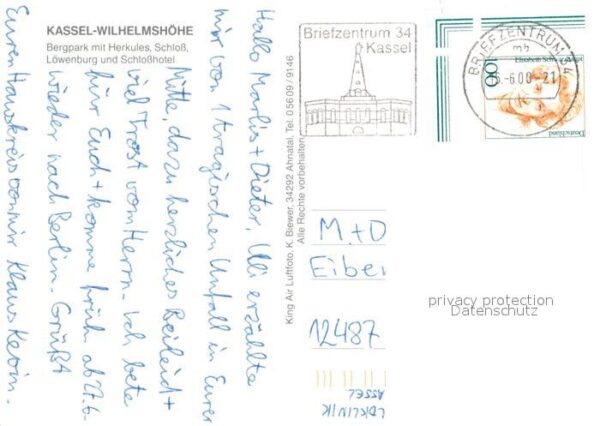 KASSEL-WILHELMSHÖHE
Bergpark mit Herkules, Schloß,
Löwenburg und Schloßhotel
Hallo Marlis + Dieter, Uli erzählte
mir von 1 tragischen Unfall in Eurer
Mitte, dazu herzliches Beileid +
viel Trost vom Herrn. Ich bete
für Euch + komme früh ab 27.6.
wieder nach Berlin. Grüßt
Euren Hauskreis von mir Klaus Kevin.
King Air Luftfoto, K. Biewer, 34292 Ahnatal, Tel. 05609/9146
Alle Rechte vorbehalten
Briefzentrum 34
Kassel
BRIEFZENTRUM 34
mb
-6.00-21
100
Deutschland
M.+D
Eibei
12487
privacy protection
Datenschutz